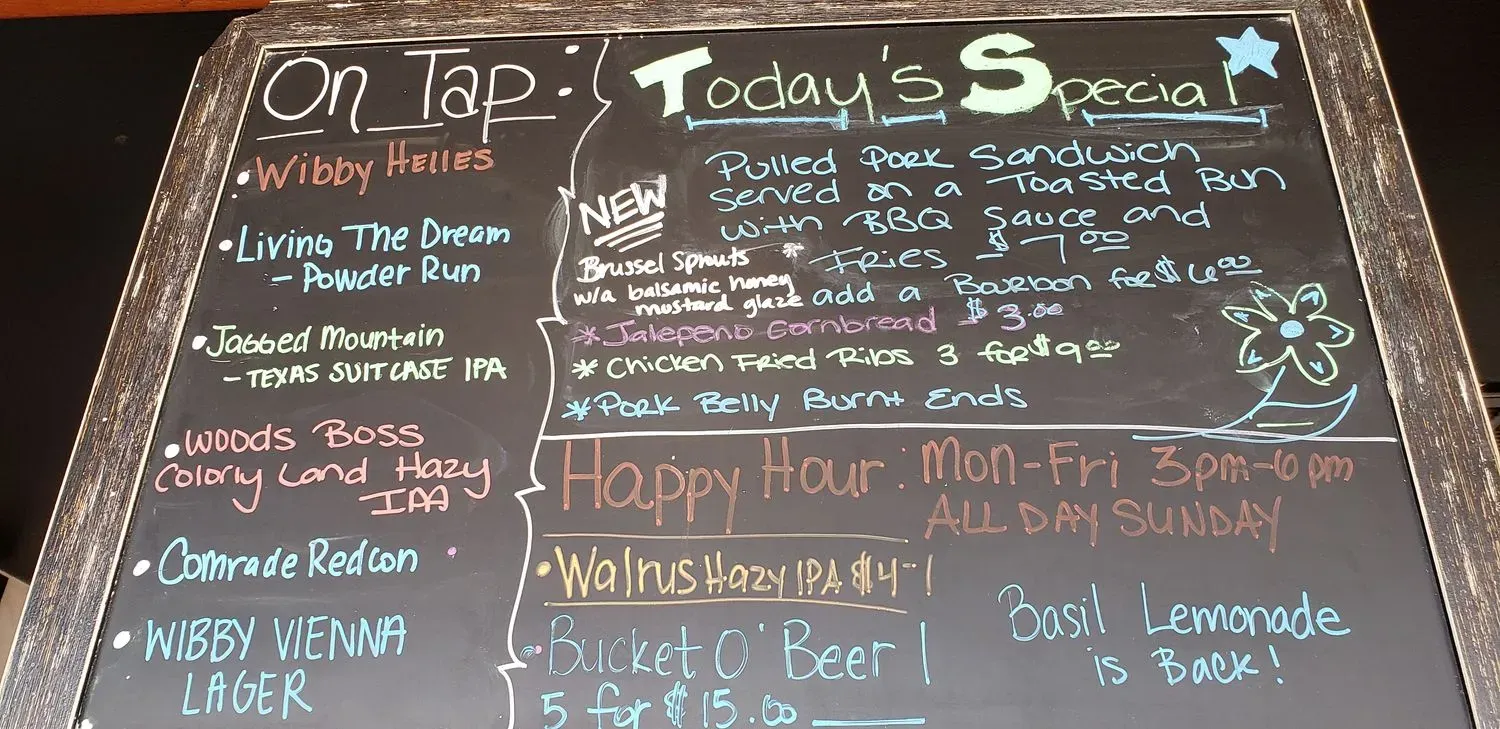 On Tap:
• Wibby Helles
• Living The Dream
– Powder Run
• Jagged Mountain
– TEXAS SUITCASE IPA
• WOODS BOSS
Colorly Land Hazy
IPA
• Comrade Redcon
• WIBBY VIENNA
LAGER
Today's Special
Pulled Pork Sandwich
served on a Toasted Bun
with BBQ Sauce and
Fries $7.00
* add a Bourbon for $6.00
NEW
Brussel Sprouts
w/a balsamic honey
mustard glaze
*Jalepeno Cornbread $3.00
*Chicken Fried Ribs 3 for $9.00
*Pork Belly Burnt Ends
Happy Hour: Mon-Fri 3pm-6pm
ALL DAY SUNDAY
• Walrus Hazy IPA $4-
• Bucket O' Beer
5 for $15.00
Basil Lemonade
is Back!